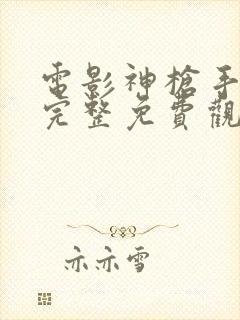 電影神槍手
完整免費觀
亦亦雪